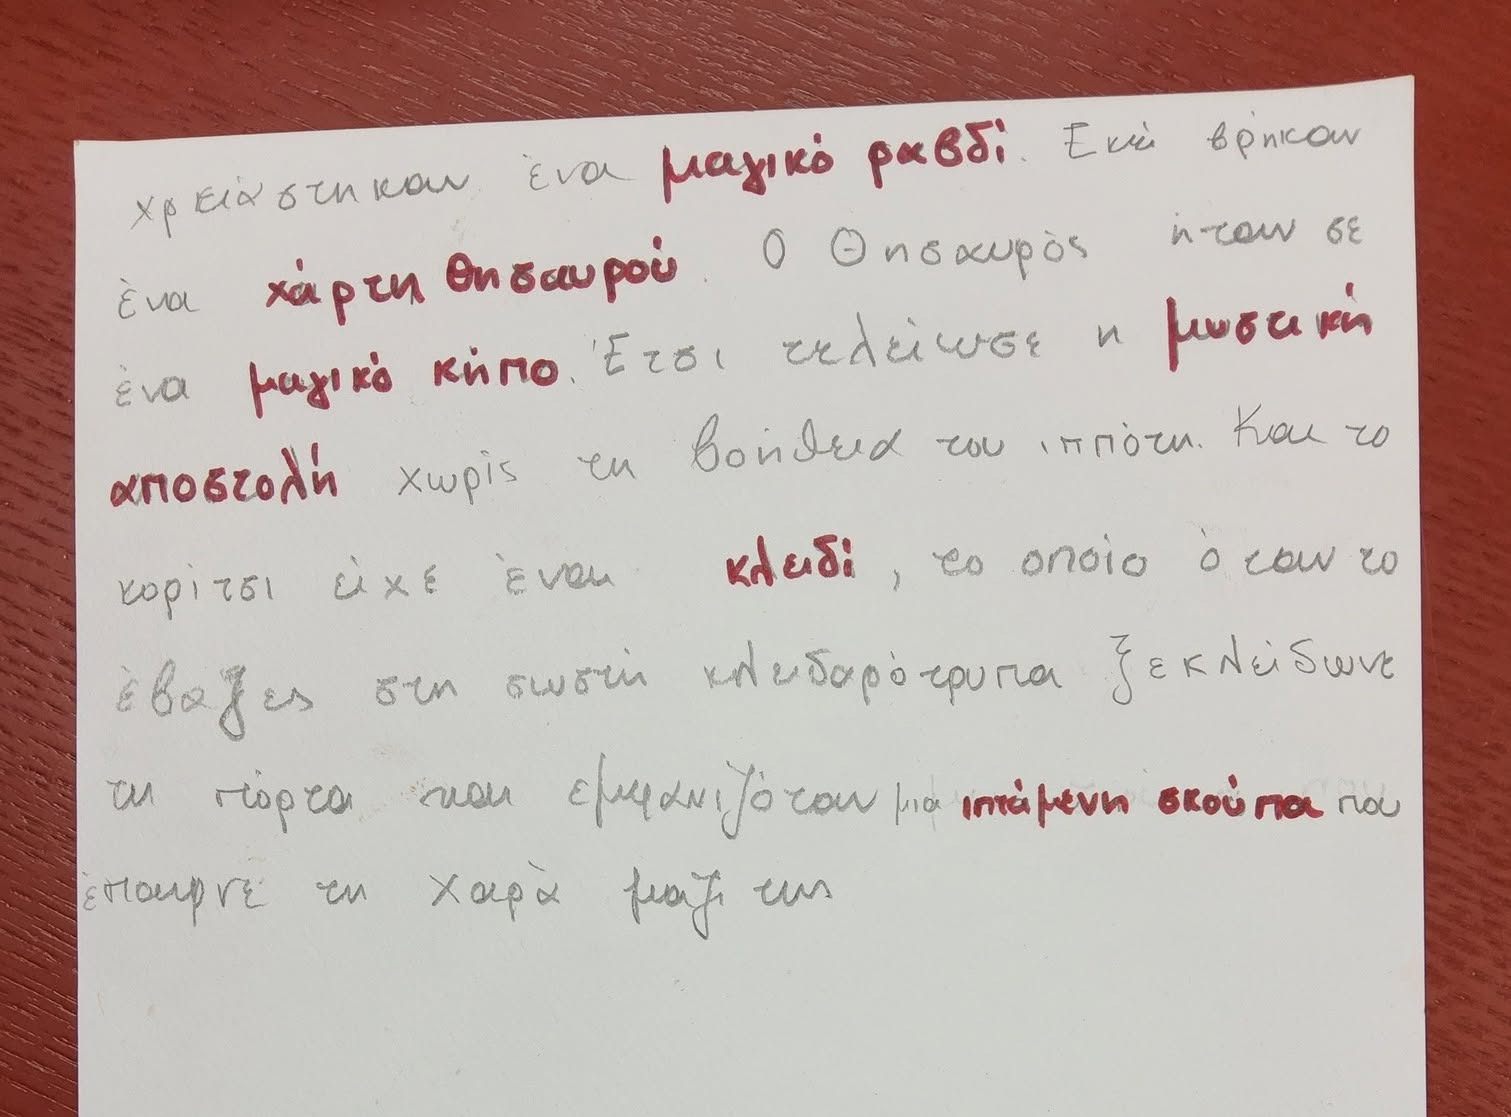 χρειάστηκαν ένα μαγικό ραβδί. Εκεί βρήκαν
ένα χάρτη θησαυρού. Ο Θησαυρός ήταν σε
ένα μαγικό κήπο. Έτσι τελείωσε η μυστική
αποστολή χωρίς τη βοήθεια του ιππότη. Και το
κορίτσι είχε ένα κλειδί, το οποίο όταν το
έβαζες στη σωστή κλειδαρότρυπα ξεκλείδωνε
τη πόρτα και εμφανιζόταν μια ιπτάμενη σκούπα που
έπαιρνε τη χαρά μαζί της